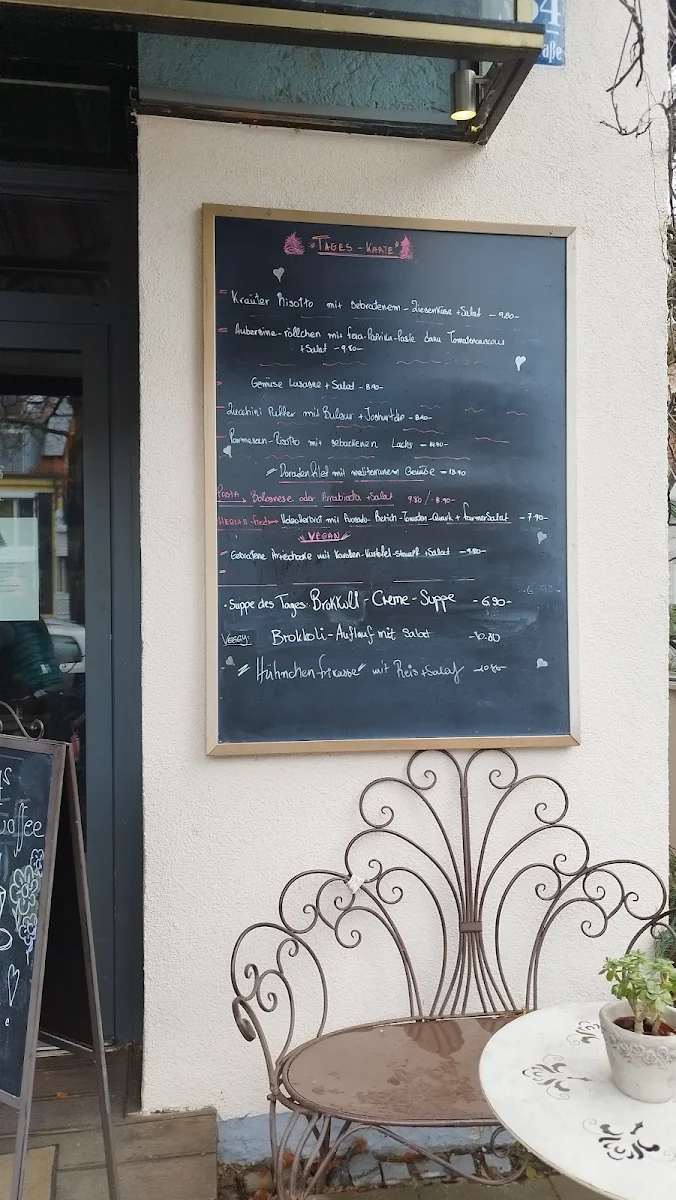 4
aße
TAGES-KARTE
Kräuter Risotto mit gebratenem Ziegenkäse + Salat - 9.80-
Aubergine-röllchen mit feta-Paprika-Paste dazu
+ Salat - 9.80-
Gemüse Lasagne + Salat - 8.90-
Zucchini Puffer mit Bulgur + Joghurtdip - 8.90-
Parmesan-Risotto mit gebackenen Lachs
Doradenfilet mit mediterranem Gemüse - 13.90
PASTA Bolognese oder Arrabiata + Salat 9.80/-8.90-
mit Avocado - - Tomaten-Quark + farmerSalat - 7.90-
VEGAN
Gebratene Artischocke mit Karotten-Kartoffel-stampf + Salat - 9.80-
Suppe des Tages: Brokkoli-Creme-Suppe - 6.90-
VEGGY: Brokkoli-Auflauf mit Salat -10.80
Hühnchenfrikassee mit Reis + Salat - 10.80-
affee